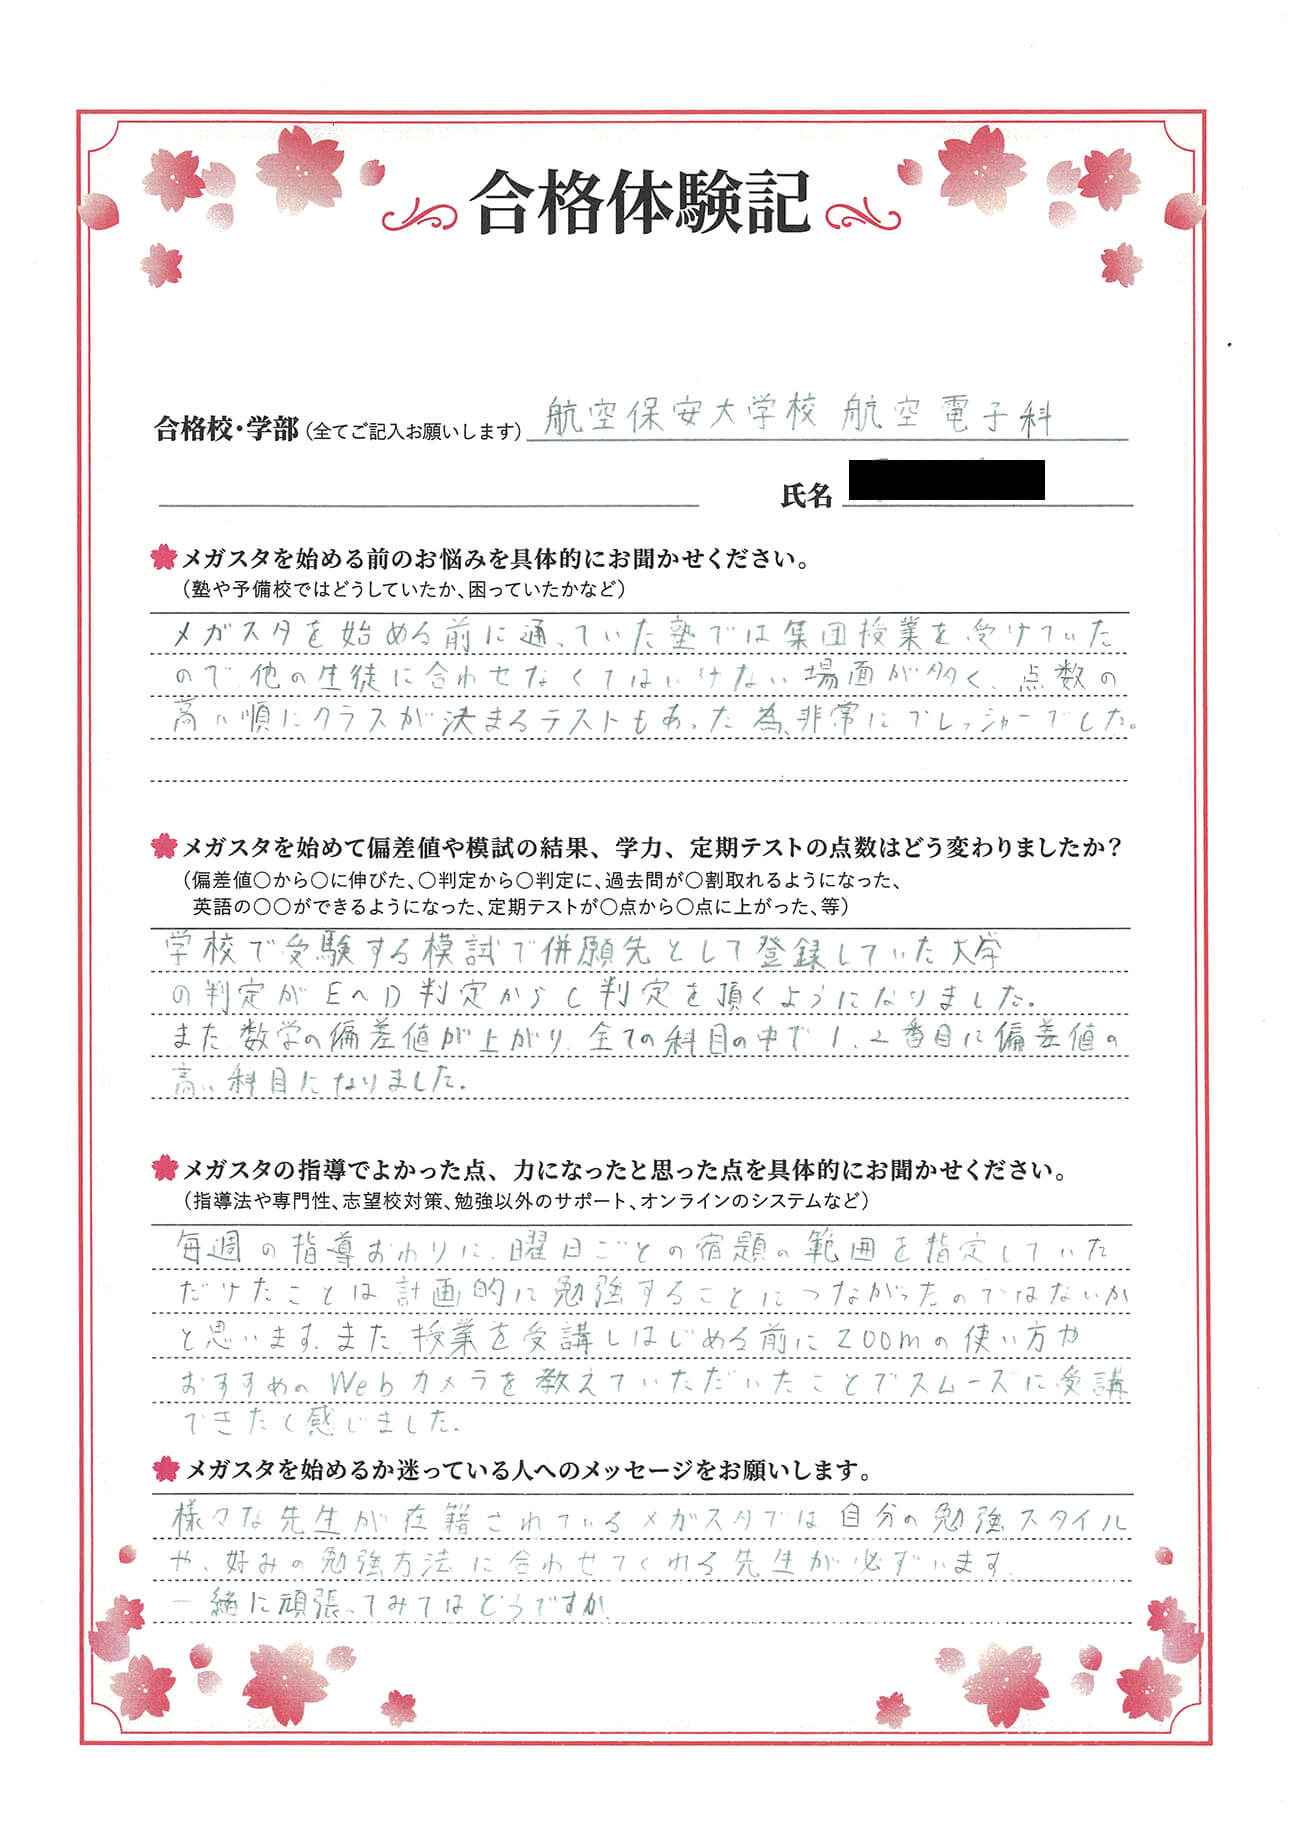 合格体験記
合格校・学部(全てご記入お願いします) 航空保安大学校 航空電子科
氏名
メガスタを始める前のお悩みを具体的にお聞かせください。
(塾や予備校ではどうしていたか、困っていたかなど)
メガスタを始める前に通っていた塾では集団授業を受けていた
ので他の生徒に合わせなくてはいけない場面が多く、点数の
高い順にクラスが決まるテストもあった為、非常にプレッシャーでした。
メガスタを始めて偏差値や模試の結果、学力、定期テストの点数はどう変わりましたか?
(偏差値○から○に伸びた、○判定から○判定に、過去問が○割取れるようになった、
英語の○○ができるようになった、定期テストが○点から○点に上がった、等)
学校で受験する模試で併願先として登録していた大学
の判定がE〜D判定からC判定を頂くようになりました。
また、数学の偏差値が上がり、全ての科目の中で1、2番目に偏差値の
高い科目になりました。
メガスタの指導でよかった点、力になったと思った点を具体的にお聞かせください。
(指導法や専門性、志望校対策、勉強以外のサポート、オンラインのシステムなど)
毎週の指導おわりに、曜日ごとの宿題の範囲を指定していた
だけたことは計画的に勉強することにつながったのではないか
と思います。また、授業を受講しはじめる前にzoomの使い方や
おすすめのWebカメラを教えていただいたことでスムーズに受講
できたと感じました。
メガスタを始めるか迷っている人へのメッセージをお願いします。
様々な先生が在籍されているメガスタでは自分の勉強スタイル
や、好みの勉強方法に合わせてくれる先生が必ずいます。
一緒に頑張ってみてはどうですか。